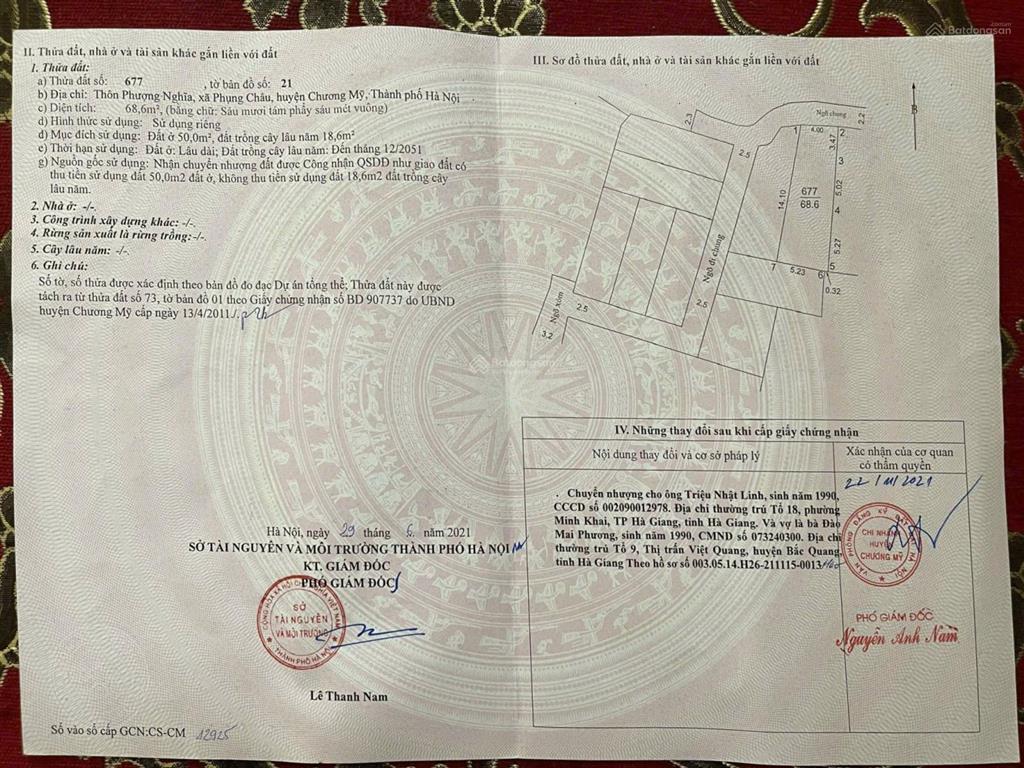 Batdongsan
II. Thửa đất, nhà ở và tài sản khác gắn liền với đất
1. Thửa đất:
a) Thửa đất số: 677 , tờ bản đồ số: 21
b) Địa chỉ: Thôn Phượng Nghĩa, xã Phụng Châu, huyện Chương Mỹ, Thành phố Hà Nội
c) Diện tích: 68,6m², (bằng chữ: Sáu mươi tám phẩy sáu mét vuông)
d) Hình thức sử dụng: Sử dụng riêng
đ) Mục đích sử dụng: Đất ở 50,0m², đất trồng cây lâu năm 18,6m²
e) Thời hạn sử dụng: Đất ở: Lâu dài; Đất trồng cây lâu năm: Đến tháng 12/2051
g) Nguồn gốc sử dụng: Nhận chuyển nhượng đất được Công nhận QSDĐ như giao đất có
thu tiền sử dụng đất 50,0m2 đất ở, không thu tiền sử dụng đất 18,6m2 đất trồng cây
lâu năm.
2. Nhà ở: -/-.
3. Công trình xây dựng khác: -/-.
4. Rừng sản xuất là rừng trồng:-/-.
5. Cây lâu năm: -/-.
6. Ghi chú:
Số tờ, số thửa được xác định theo bản đồ đo đạc Dự án tổng thể; Thửa đất này được
tách ra từ thửa đất số 73, tờ bản đồ 01 theo Giấy chứng nhận số BD 907737 do UBND
huyện Chương Mỹ cấp ngày 13/4/2011./.
Hà Nội, ngày 29 tháng 6 năm 2021
SỞ TÀI NGUYÊN VÀ MÔI TRƯỜNG THÀNH PHỐ HÀ NỘI
KT. GIÁM ĐỐC
PHÓ GIÁM ĐỐC
CỘNG HÒA XÃ HỘI CHỦ NGHĨA VIỆT NAM
SỞ
TÀI NGUYÊN
VÀ MÔI TRƯỜNG
THÀNH PHỐ HÀ NỘI
Lê Thanh Nam
Số vào sổ cấp GCN:CS-CM 12925
III. Sơ đồ thửa đất, nhà ở và tài sản khác gắn liền với đất
B
Ngõ chung
2.2
2.3
1
4.00
2
3.47
2.5
3
5.02
677
68.6
14.10
4
5.27
Ngõ đi chung
7
5.23
6
5
0.32
2.5
Ngõ xóm
2.5
3.2
IV. Những thay đổi sau khi cấp giấy chứng nhận
Nội dung thay đổi và cơ sở pháp lý
Xác nhận của cơ quan
có thẩm quyền
22/11/2021
Chuyển nhượng cho ông Triệu Nhật Linh, sinh năm 1990,
CCCD số 002090012978. Địa chỉ thường trú Tổ 18, phường
Minh Khai, TP Hà Giang, tỉnh Hà Giang. Và vợ là bà Đào
Mai Phương, sinh năm 1990, CMND số 073240300. Địa chỉ
thường trú Tổ 9, Thị trấn Việt Quang, huyện Bắc Quang,
tỉnh Hà Giang Theo hồ sơ số 003.05.14.H26-211115-0013
VĂN PHÒNG ĐĂNG KÝ ĐẤT ĐAI HÀ NỘI
CHI NHÁNH
HUYỆN
CHƯƠNG MỸ
PHÓ GIÁM ĐỐC
Nguyễn Anh Nam